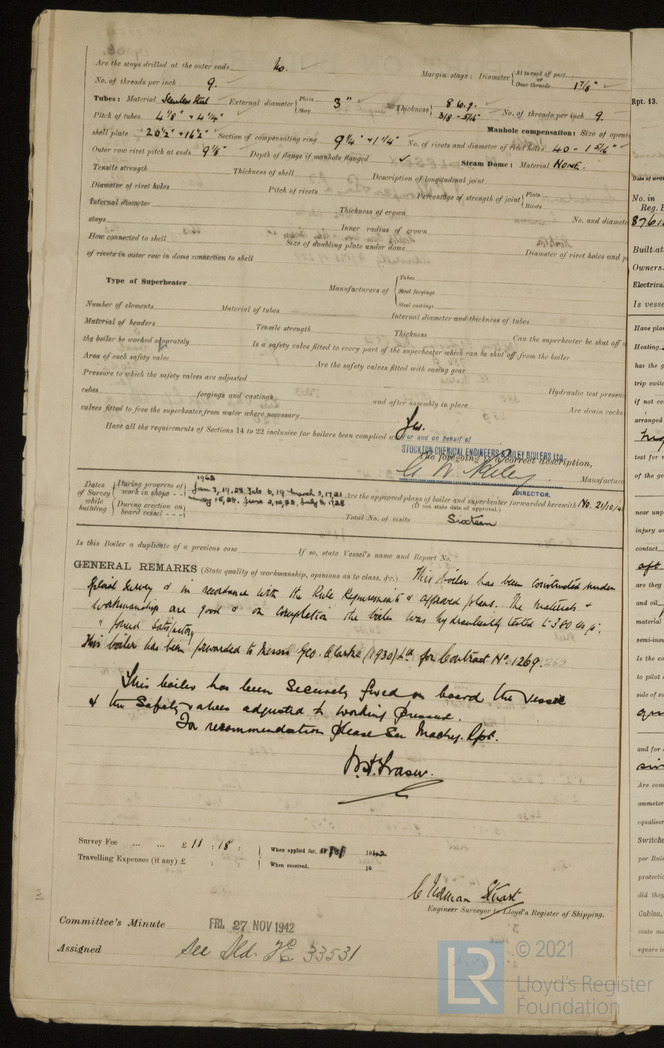 Are the stays drilled at the outer ends No. Margin stays: Diameter { At turned off part, or Over threads 1 7/8"
No. of threads per inch 9.
Tubes: Material Seamless Steel External diameter { Plain Stay 3" Thickness { 8 W.G. 3/8 - 5/16" No. of threads per inch 9.
Pitch of tubes 4 1/8" × 4 1/4" Manhole compensation: Size of opening
shell plate 20 1/2" × 16 1/2" Section of compensating ring 9 1/4" × 1 1/4" No. of rivets and diameter of rivet holes 40 - 1 5/16"
Outer row rivet pitch at ends 9 1/8" Depth of flange if manhole flanged Steam Dome: Material NONE.
Tensile strength Thickness of shell Description of longitudinal joint
Diameter of rivet holes Pitch of rivets Percentage of strength of joint { Plate Rivets
Internal diameter Thickness of crown No. and diameter
stays Inner radius of crown
How connected to shell Size of doubling plate under dome Diameter of rivet holes and
of rivets in outer row in dome connection to shell
Type of Superheater Manufacturers of { Tubes Steel forgings Steel castings
Number of elements Material of tubes Internal diameter and thickness of tubes
Material of headers Tensile strength Thickness Can the superheater be shut off
the boiler be worked separately Is a safety valve fitted to every part of the superheater which can be shut off from the boiler
Area of each safety valve Are the safety valves fitted with easing gear
Pressure to which the safety valves are adjusted Hydraulic test pressure
tubes forgings and castings and after assembly in place Are drain cocks
valves fitted to free the superheater from water where necessary
Have all the requirements of Sections 14 to 22 inclusive for boilers been complied with Yes.
For and on behalf of
STOCKTON CHEMICAL ENGINEERS & RILEY BOILERS Ltd.
The foregoing is a correct description,
Manufacturer
DIRECTOR.
Dates of Survey while building { During progress of work in shops - - 1942 Jan 7, 19, 28 Feb 5, 19 March 3, 17, 21
During erection on board vessel - - May 15, 28. June 2, 10, 23, July 6, 1928
Are the approved plans of boiler and superheater forwarded herewith No. 21/10/41
(If not state date of approval.)
Total No. of visits Sixteen
Is this Boiler a duplicate of a previous case If so, state Vessel's name and Report No.
GENERAL REMARKS (State quality of workmanship, opinions as to class, &c.) This boiler has been constructed under
Special Survey & in accordance with the Rule Requirements & approved plans. The materials &
workmanship are good & on completion the boiler was hydraulically tested to 380 lb/□"
& found satisfactory
This boiler has been forwarded to Messrs Geo. Clarke (1930) Ltd for Contract No. 1269.
This boiler has been securely fixed on board the vessel
& the Safety valves adjusted to working pressure.
For recommendation please See Machy. Rpt.
W.F. Fraser.
Survey Fee ... ... £ 11 : 18 : When applied for, 1942
Travelling Expenses (if any) £ : : When received, 19
Stuart
Engineer Surveyor to Lloyd's Register of Shipping.
Committee's Minute FRI. 27 NOV 1942
Assigned See Sld. FE 33531
Rpt. 13.
No. in
Reg. B
8761
Built at
Owners
Electrical
Is vessel
Have plans
Heating
© 2021
LR
Lloyd's Register
Foundation